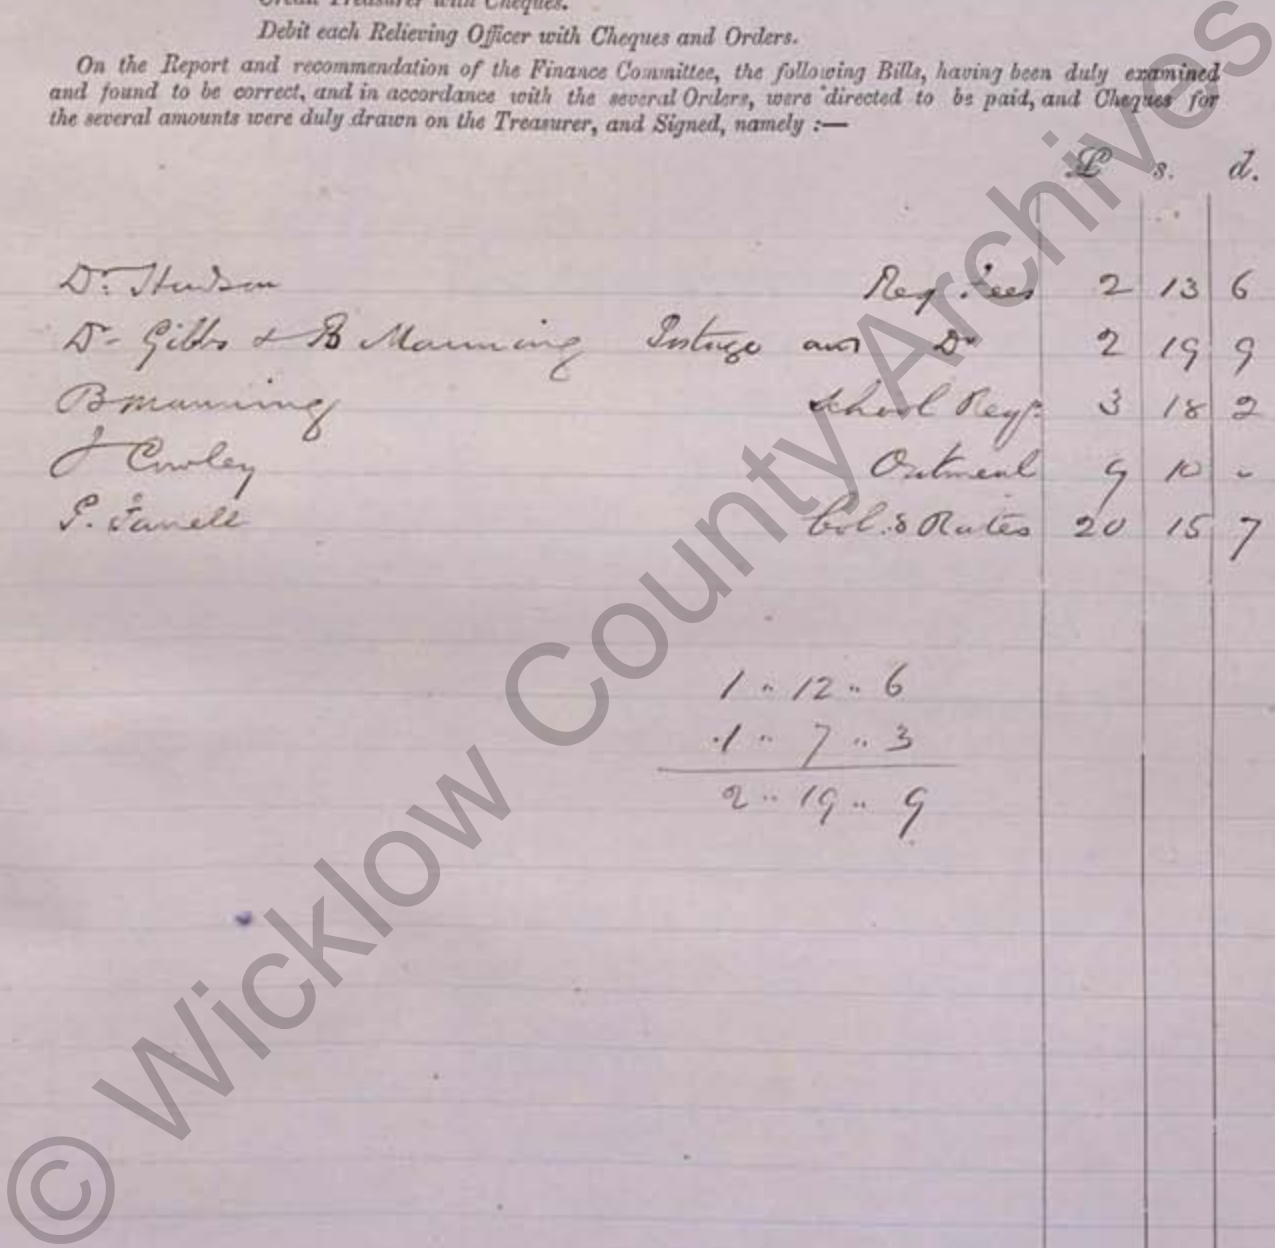 Credit Treasurer with Cheques.
Debit each Relieving Officer with Cheques and Orders.
On the Report and recommendation of the Finance Committee, the following Bills, having been duly examined
and found to be correct, and in accordance with the several Orders, were directed to be paid, and Cheques for
the several amounts were duly drawn on the Treasurer, and Signed, namely :—
£ s. d.
Dr. Hudson Reg Fees 2 13 6
Dr Gibbs & B Manning Postage and Do 2 19 9
B Manning School Reqs 3 18 2
J Cowley Oatmeal 9 10 -
P. Farrell Col. & Rates 20 15 7
1 " 12 " 6
1 " 7 " 3
2 " 19 " 9
© Wicklow County Archives